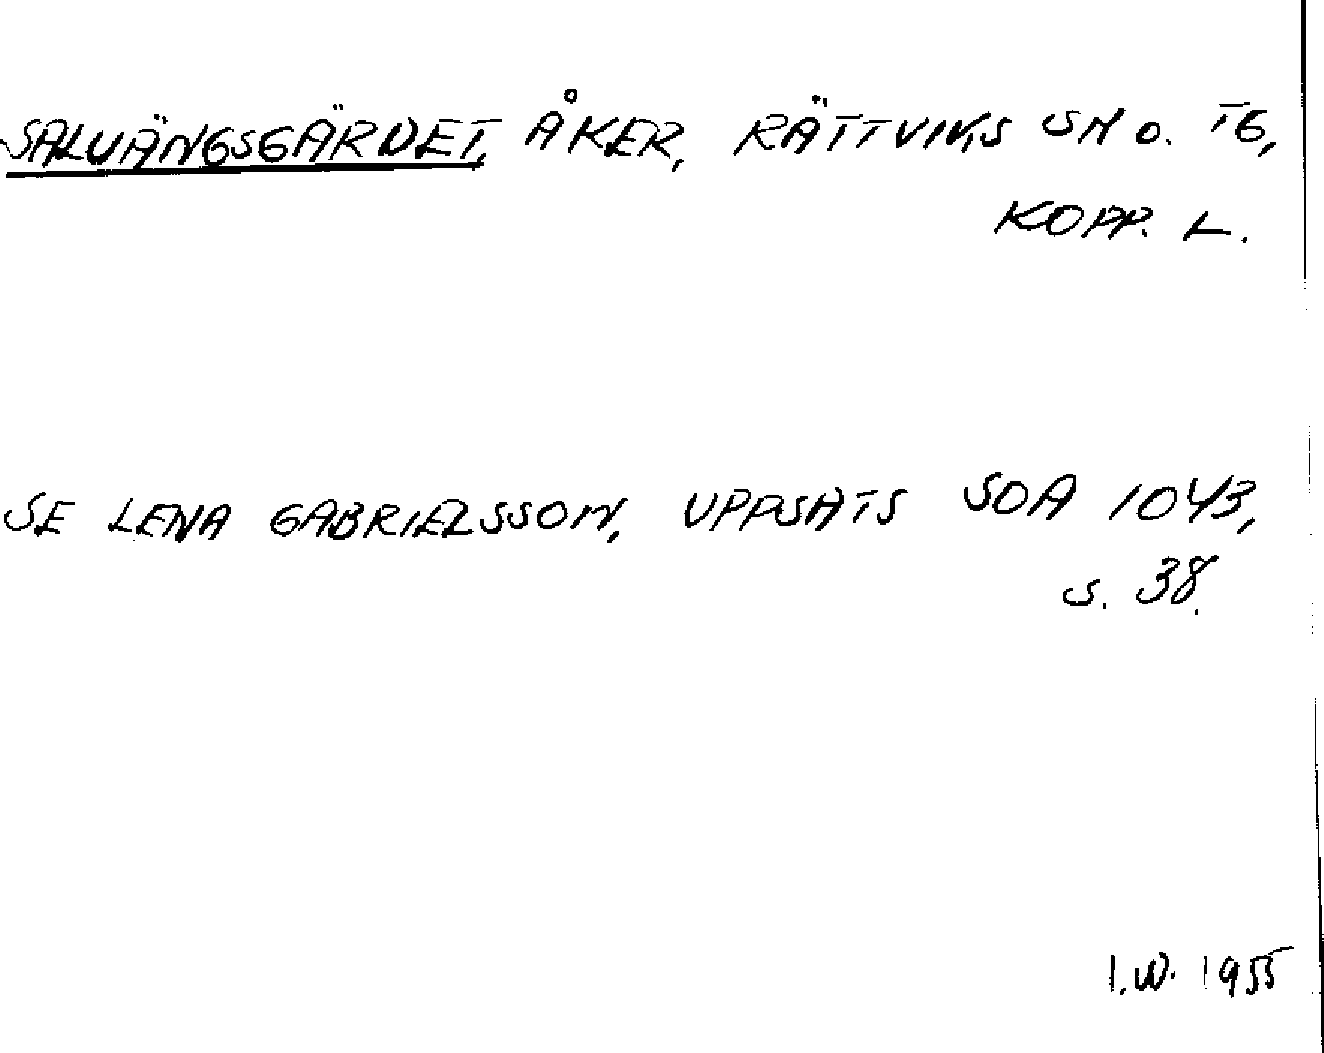 SALUÄNGSGÄRDET, ÅKER, RÄTTVIKS SN O. TG,
KOPP. L.
SE LENA GABRIELSSON, UPPSATS SOA 1043,
S. 38.
I.W. 1955